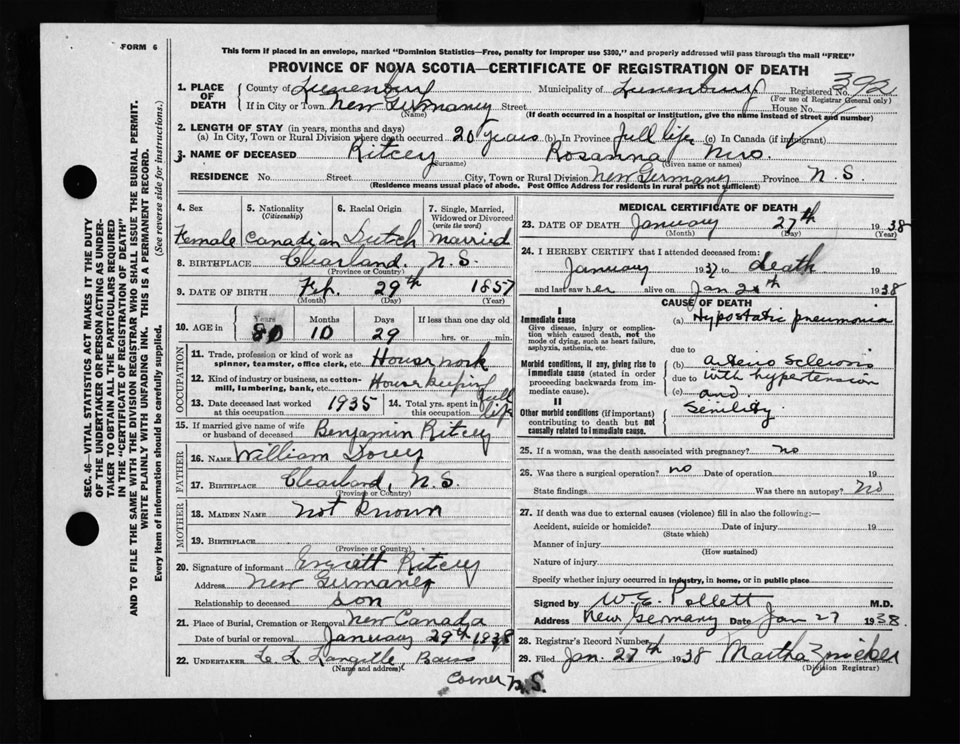 FORM 6
This form if placed in an envelope, marked "Dominion Statistics—Free, penalty for improper use $300," and properly addressed will pass through the mail "FREE"
PROVINCE OF NOVA SCOTIA—CERTIFICATE OF REGISTRATION OF DEATH
392
1. PLACE OF DEATH
County of Lunenburg Municipality of Lunenburg Registered No.
(For use of Registrar General only)
If in City or Town New Germaney Street House No.
(Name) (If death occurred in a hospital or institution, give the name instead of street and number)
2. LENGTH OF STAY (in years, months and days)
(a) In City, Town or Rural Division where death occurred 20 years (b) In Province full life (c) In Canada (if immigrant)
3. NAME OF DECEASED Ritcey Rosanna Mrs.
(Surname) (Given name or names)
RESIDENCE No. Street City, Town or Rural Division New Germany Province N.S.
(Residence means usual place of abode. Post Office Address for residents in rural parts not sufficient)
4. Sex 5. Nationality (Citizenship) 6. Racial Origin 7. Single, Married, Widowed or Divorced (write the word)
Female Canadian Dutch Married
8. BIRTHPLACE Clearland. N.S.
(Province or Country)
9. DATE OF BIRTH Feb. 29th 1857
(Month) (Day) (Year)
10. AGE in Years Months Days If less than one day old
80 10 29 hrs. or min.
OCCUPATION
11. Trade, profession or kind of work as spinner, teamster, office clerk, etc. House work
12. Kind of industry or business, as cotton-mill, lumbering, bank, etc. House keeping
13. Date deceased last worked at this occupation 1935 14. Total yrs. spent in this occupation full life
15. If married give name of wife or husband of deceased Benjamin Ritcey
FATHER
16. NAME William Dorey
17. BIRTHPLACE Clearland, N.S.
(Province or Country)
MOTHER
18. MAIDEN NAME Not Known
19. BIRTHPLACE
(Province or Country)
20. Signature of informant Everett Ritcey
Address New Germaney
Relationship to deceased son
21. Place of Burial, Cremation or Removal New Canada
Date of burial or removal January 29th 1938
22. UNDERTAKER
(Name and address)
Corner N.S.
MEDICAL CERTIFICATE OF DEATH
23. DATE OF DEATH January 27th 1938
(Month) (Day) (Year)
24. I HEREBY CERTIFY that I attended deceased from:
January 1937 to death 19
and last saw her alive on Jan 1938
CAUSE OF DEATH
Immediate cause (a) Hypostatic pneumonia
Give disease, injury or complication which caused death, not the mode of dying, such as heart failure, asphyxia, asthenia, etc.
due to
Morbid conditions, if any, giving rise to immediate cause (stated in order proceeding backwards from immediate cause).
(b) Arterio Sclerosis
due to with hypertension
(c) and
Other morbid conditions (if important) contributing to death but not causally related to immediate cause.
Senility
25. If a woman, was the death associated with pregnancy? no
26. Was there a surgical operation? no Date of operation 19
State findings Was there an autopsy? No
27. If death was due to external causes (violence) fill in also the following:—
Accident, suicide or homicide? Date of injury 19
(State which)
Manner of injury
(How sustained)
Nature of injury
Specify whether injury occurred in industry, in home, or in public place
Signed by W.E. Pollett M.D.
Address New Germany Date Jan 27 1938.
28. Registrar's Record Number
29. Filed Jan. 27th 1938 Martha Zwicker
(Division Registrar)
SEC. 46—VITAL STATISTICS ACT MAKES IT THE DUTY
OF THE UNDERTAKER OR PERSON ACTING AS UNDER-
TAKER TO OBTAIN ALL THE PARTICULARS REQUIRED
IN THE "CERTIFICATE OF REGISTRATION OF DEATH"
AND TO FILE THE SAME WITH THE DIVISION REGISTRAR WHO SHALL ISSUE THE BURIAL PERMIT.
WRITE PLAINLY WITH UNFADING INK. THIS IS A PERMANENT RECORD.
Every item of information should be carefully supplied. (See reverse side for instructions.)